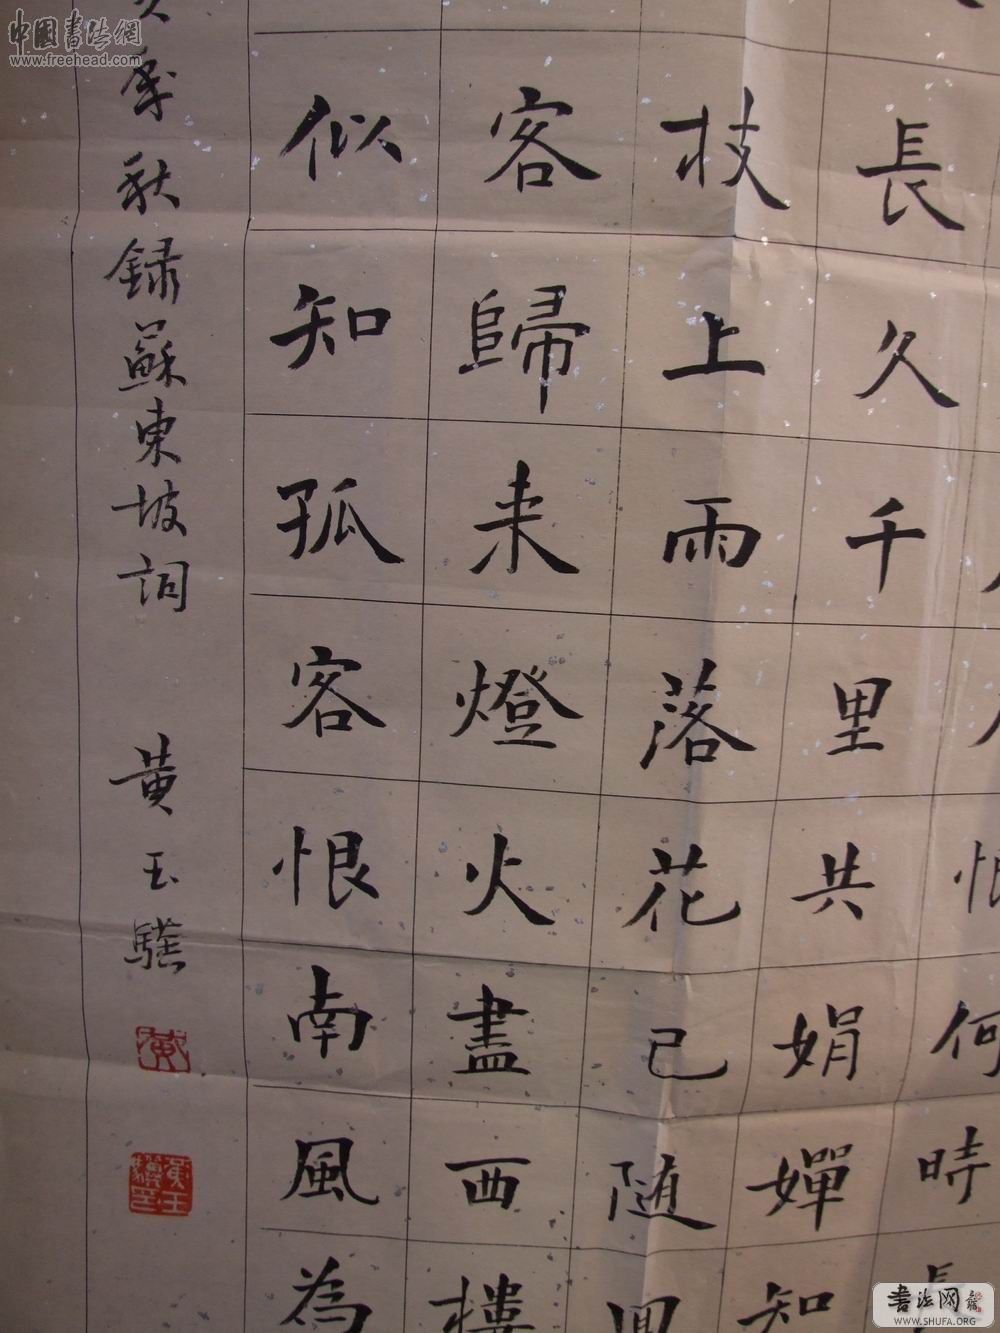 中國書法網
www.freehead.com
恨何時長
長久千里共娟嬋知
枝上雨落花已随風
客歸来燈火盡西樓
似知孤客恨南風為
季秋録蘇東坡詞 黄玉驥
書法网
www.SHUFA.ORG